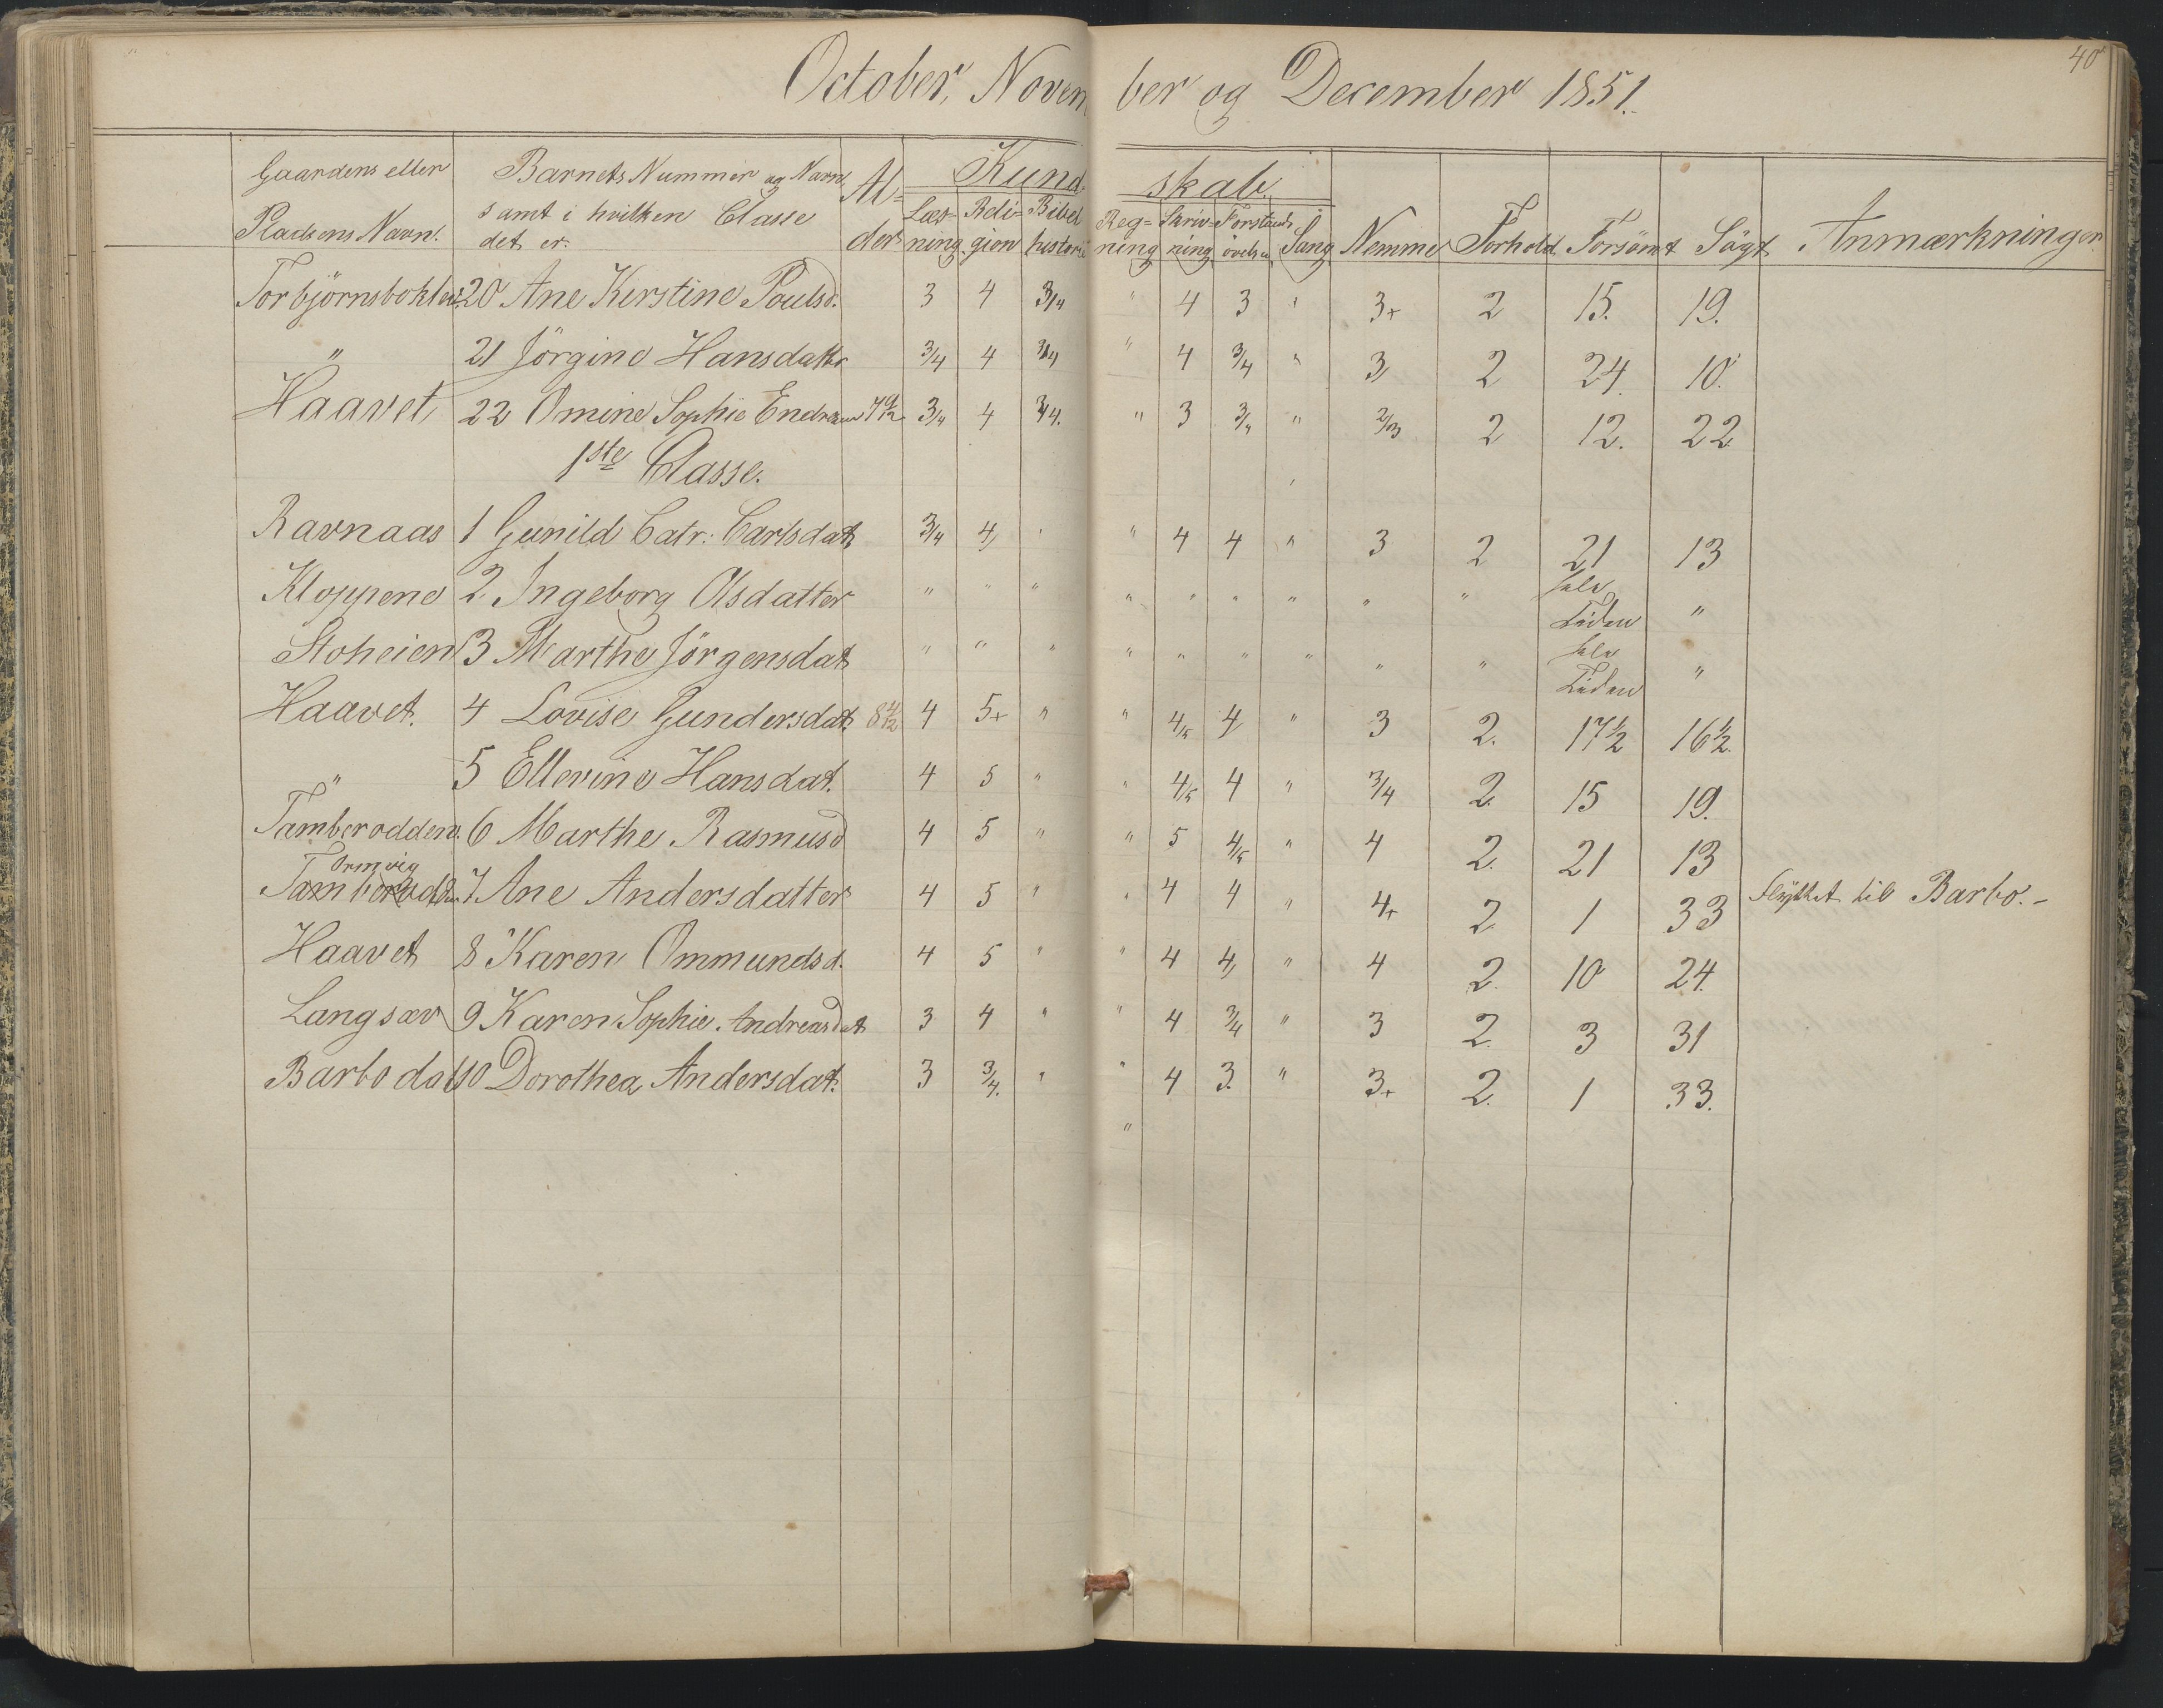 40
October, November og December 1851.
Gaardens eller Pladsens Navn. Barnets Nummer og Navn samt i hvilken Classe det er. Alder Kundskab. Nemme Forhold Forsömt Sögt Anmærkninger
Læsning Religion Bibelhistorie Regning Skrivning Forstandsövelse Sang
20 Ane Kirstine Poulsd. 3 4 3/4 " 4 3 " 3+ 2 15. 19.
" 21 Jörgine Hansdattr 3/4 4 3/4 " 4 3/4 " 3 2 24 10.
Haavet 22 Omine Sophie 3/4 4 3/4. " 3 3/4 " 2/3 2 12. 22
1ste Classe.
Ravnaas 1 Gunild Catr: Carlsdat. 3/4 4 " " 4 4 " 3 2 21 13
Kloppene 2 Ingeborg Olsdatter " " " " " " " " " hele Tiden "
Stoheien 3 Marthe Jörgensdat " " " " " " " " " hele Tiden "
Haavet. 4 Lovise Gundersdat. 8 4/12 4 5+ " " 4/5 4 " 3 2. 17½ 16½.
" 5 Ellevine Hansdat. 4 5 " " 4/5 4 " 3/4 2. 15 19.
Tamberodden. 6 Marthe Rasmusd 4 5 " " 5 4/5 " 4 2. 21 13
Ormvig
7 Ane Andersdatter 4 5 " " 4 4 " 4+ 2. 1 33 Flyttet til Barbo.-
Haavet 8 Karen Ommundsd. 4 5 " " 4 4 " 4 2. 10 24.
Langsæv 9 Karen Sophie Andreasdat 3 4 " " 4 3/4 " 3 2. 3 31
Barbodal 10 Dorothea Andersdat. 3 3/4. " " 4 3. " 3+ 2. 1 33.
"